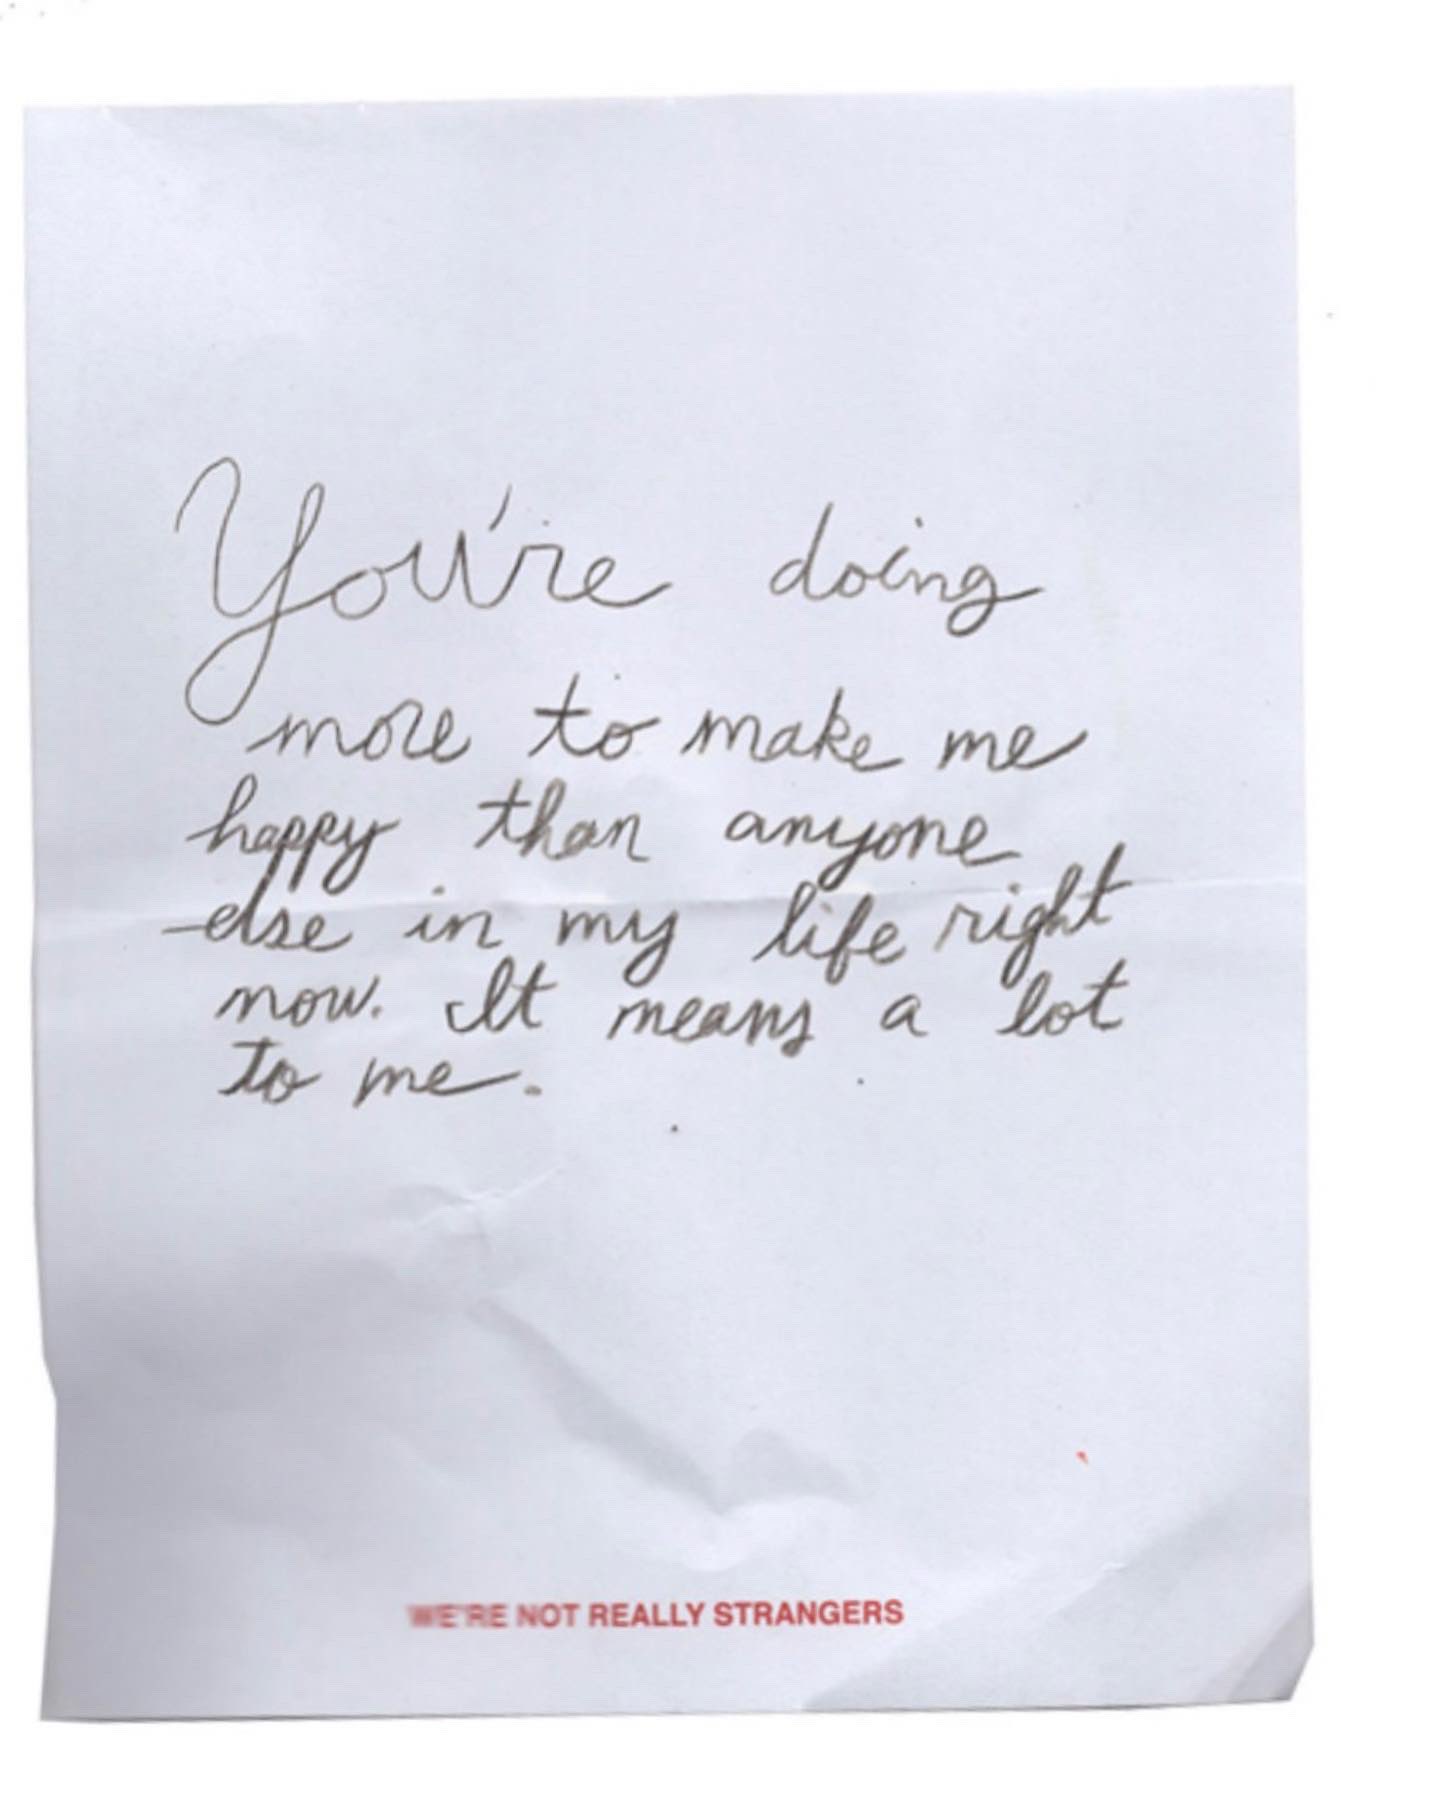 You're doing
more to make me
happy than anyone
else in my life right
now. It means a lot
to me.
WE'RE NOT REALLY STRANGERS